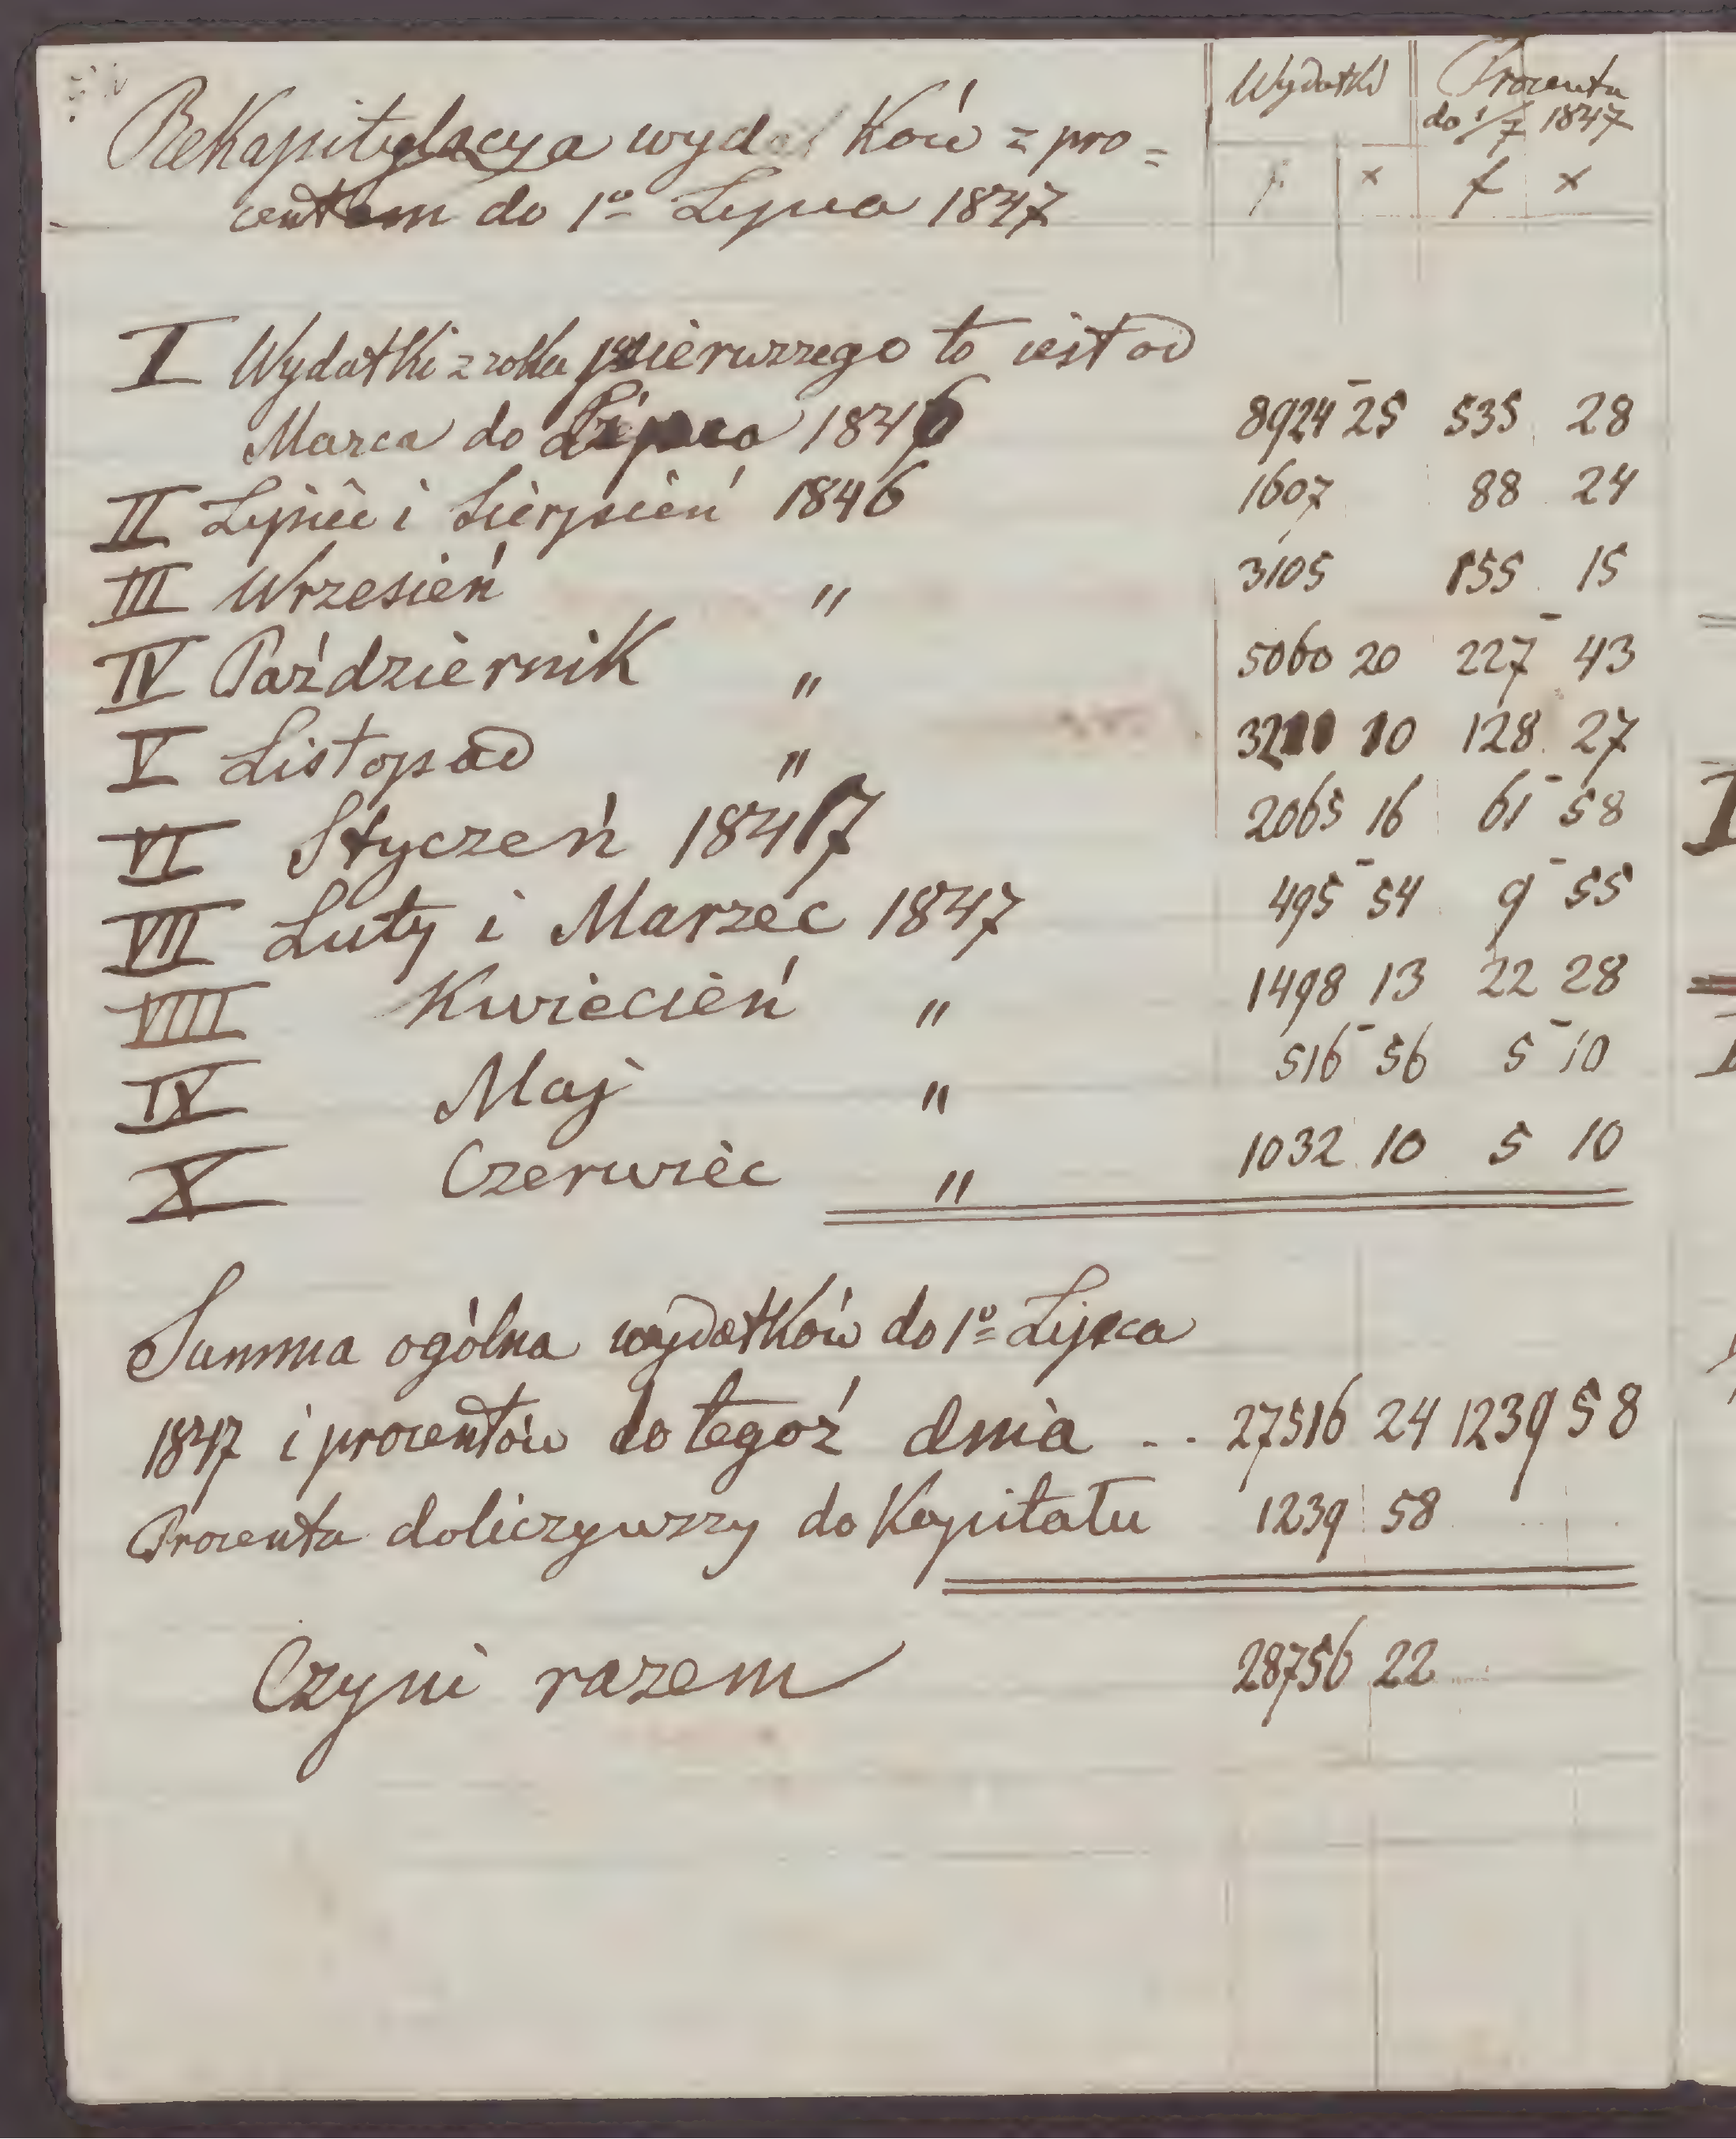 Wydatki Procenta
do 1/7 1847
Rekapitulacya wydatków z pro=
centem do 1º Lipca 1847
f x f x
I Wydatki z roku pierwszego to iest od
Marca do Lipca 1846 8924 25 535 28
II Lipiec i Sierpień 1846 1607 88 24
III Wrzesień " 3105 155 15
IV Październik " 5060 20 227 43
V Listopad " 3211 10 128 27
VI Styczeń 1847 2065 16 61 58
VII Luty i Marzec 1847 495 54 9 55
VIII Kwiecień " 1498 13 22 28
IX Maj " 516 56 5 10
X Czerwiec " 1032 10 5 10
Summa ogólna wydatków do 1º Lipca
1847 i procentów do tegoż dnia .. 27516 24 1239 58
Procenta doliczywszy do Kapitału 1239 58
Czyni razem 28756 22